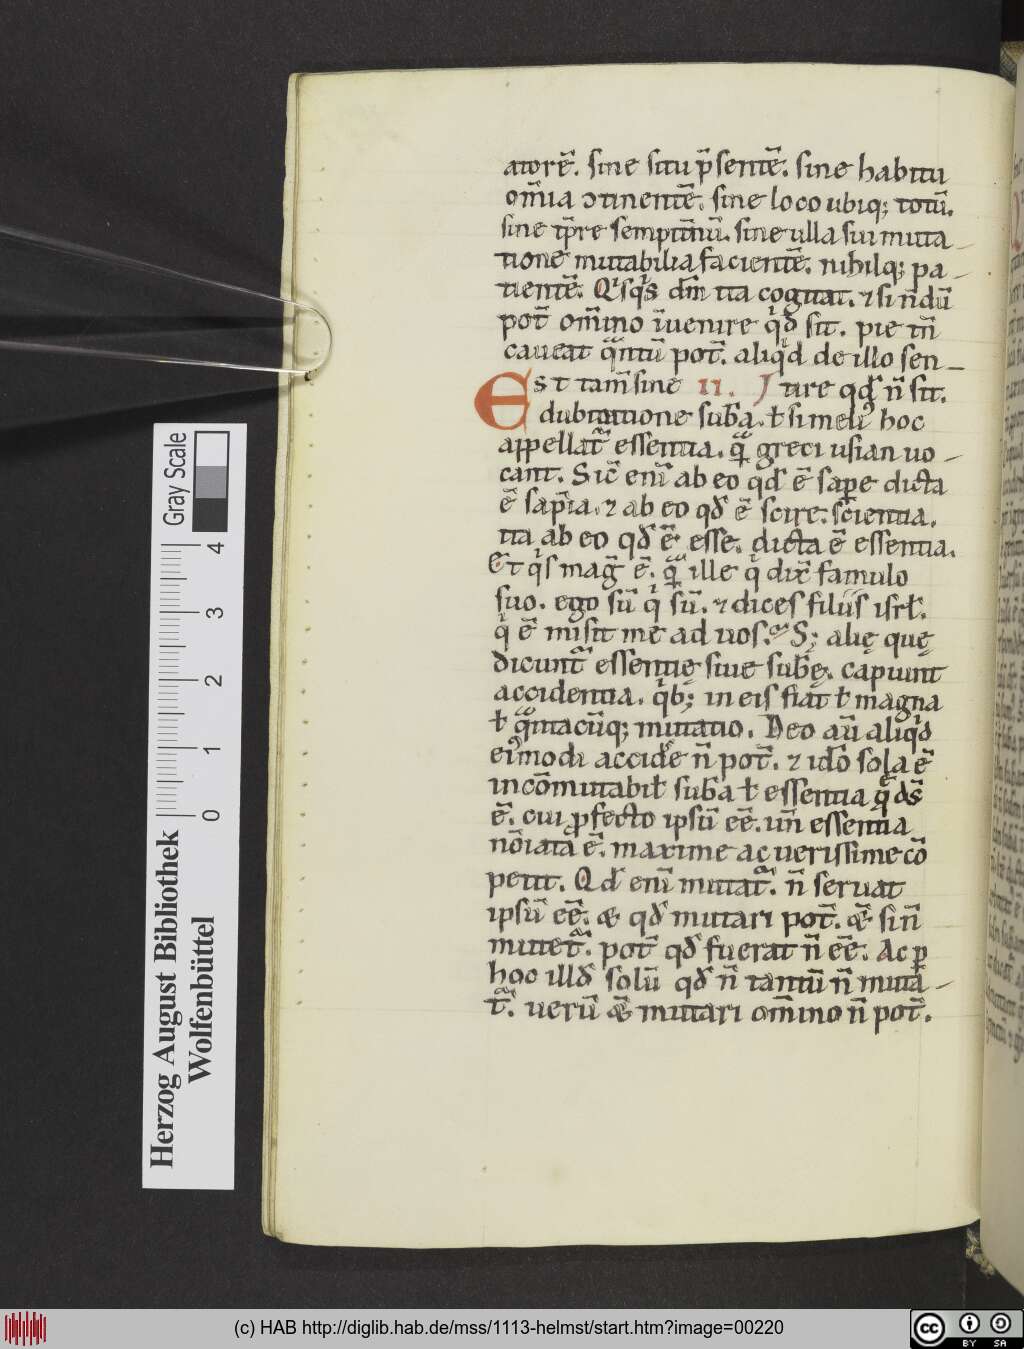 atorē. sine situ p̄sentē. sine habitu
om̄ia ↄtinentē. sine loco ubiq; totū.
sine tp̄re sempit̄nū. sine ulla sui muta
tione mutabilia facientē. nihilq; pa
tientē. Qⁱsqⁱs dm̄ ita cogitat. ⁊ si nōdū
pot̄ om̄ino īuenire qⁱd sit. pie tn̄
caueat qᵃntū pot̄. aliqⁱd de illo sen
Est tam̄ sine II. tire qd̄ n̄ sit.
dubitatione sub̄a. ł si meliꝰ hoc
appellat᷑ essentia. qᵃm greci usian uo
cant. Sic̄ eni ab eo qd̄ ē saꝑe dicta
ē sap̄ia. ⁊ ab eo qd̄ ē scire: scientia.
ita ab eo qd̄ ē esse. dicta ē essentia.
Et qⁱs maḡ ē. qᵃm ille qⁱ dix̄ famulo
suo. ego sū qⁱ sū. ⁊ dices filiis isrł.
qⁱ ē misit me ad uos. S; alię quę
dicunt᷑ essentię siue sub̄ę. capiunt
accidentia. qⁱb; in eis fiat ł magna
ł qᵃntacūq; mutatio. Deo aū aliqⁱd
eiꝰmodi accide n̄ pot̄. ⁊ idō sola ē
incōmutabił sub̄a ł essentia q̄ ds̄
ē. cui ꝓfecto ipsū eē. un̄ essentia
nōiata ē. maxime ac uerissime cō
petit. Qd̄ eni mutat᷑. n̄ seruat
ipsū eē. & qd̄ mutari pot̄. &̄ si n̄
mutet᷑. pot̄ qd̄ fuerat n̄ eē. Ac ꝑ
hoc illd̄ solū qd̄ n̄ tantū n̄ muta
t᷑. uerū &̄ mutari om̄ino n̄ pot̄.
Gray Scale
0 1 2 3 4
Herzog August Bibliothek
Wolfenbüttel
(c) HAB http://diglib.hab.de/mss/1113-helmst/start.htm?image=00220
cc BY SA